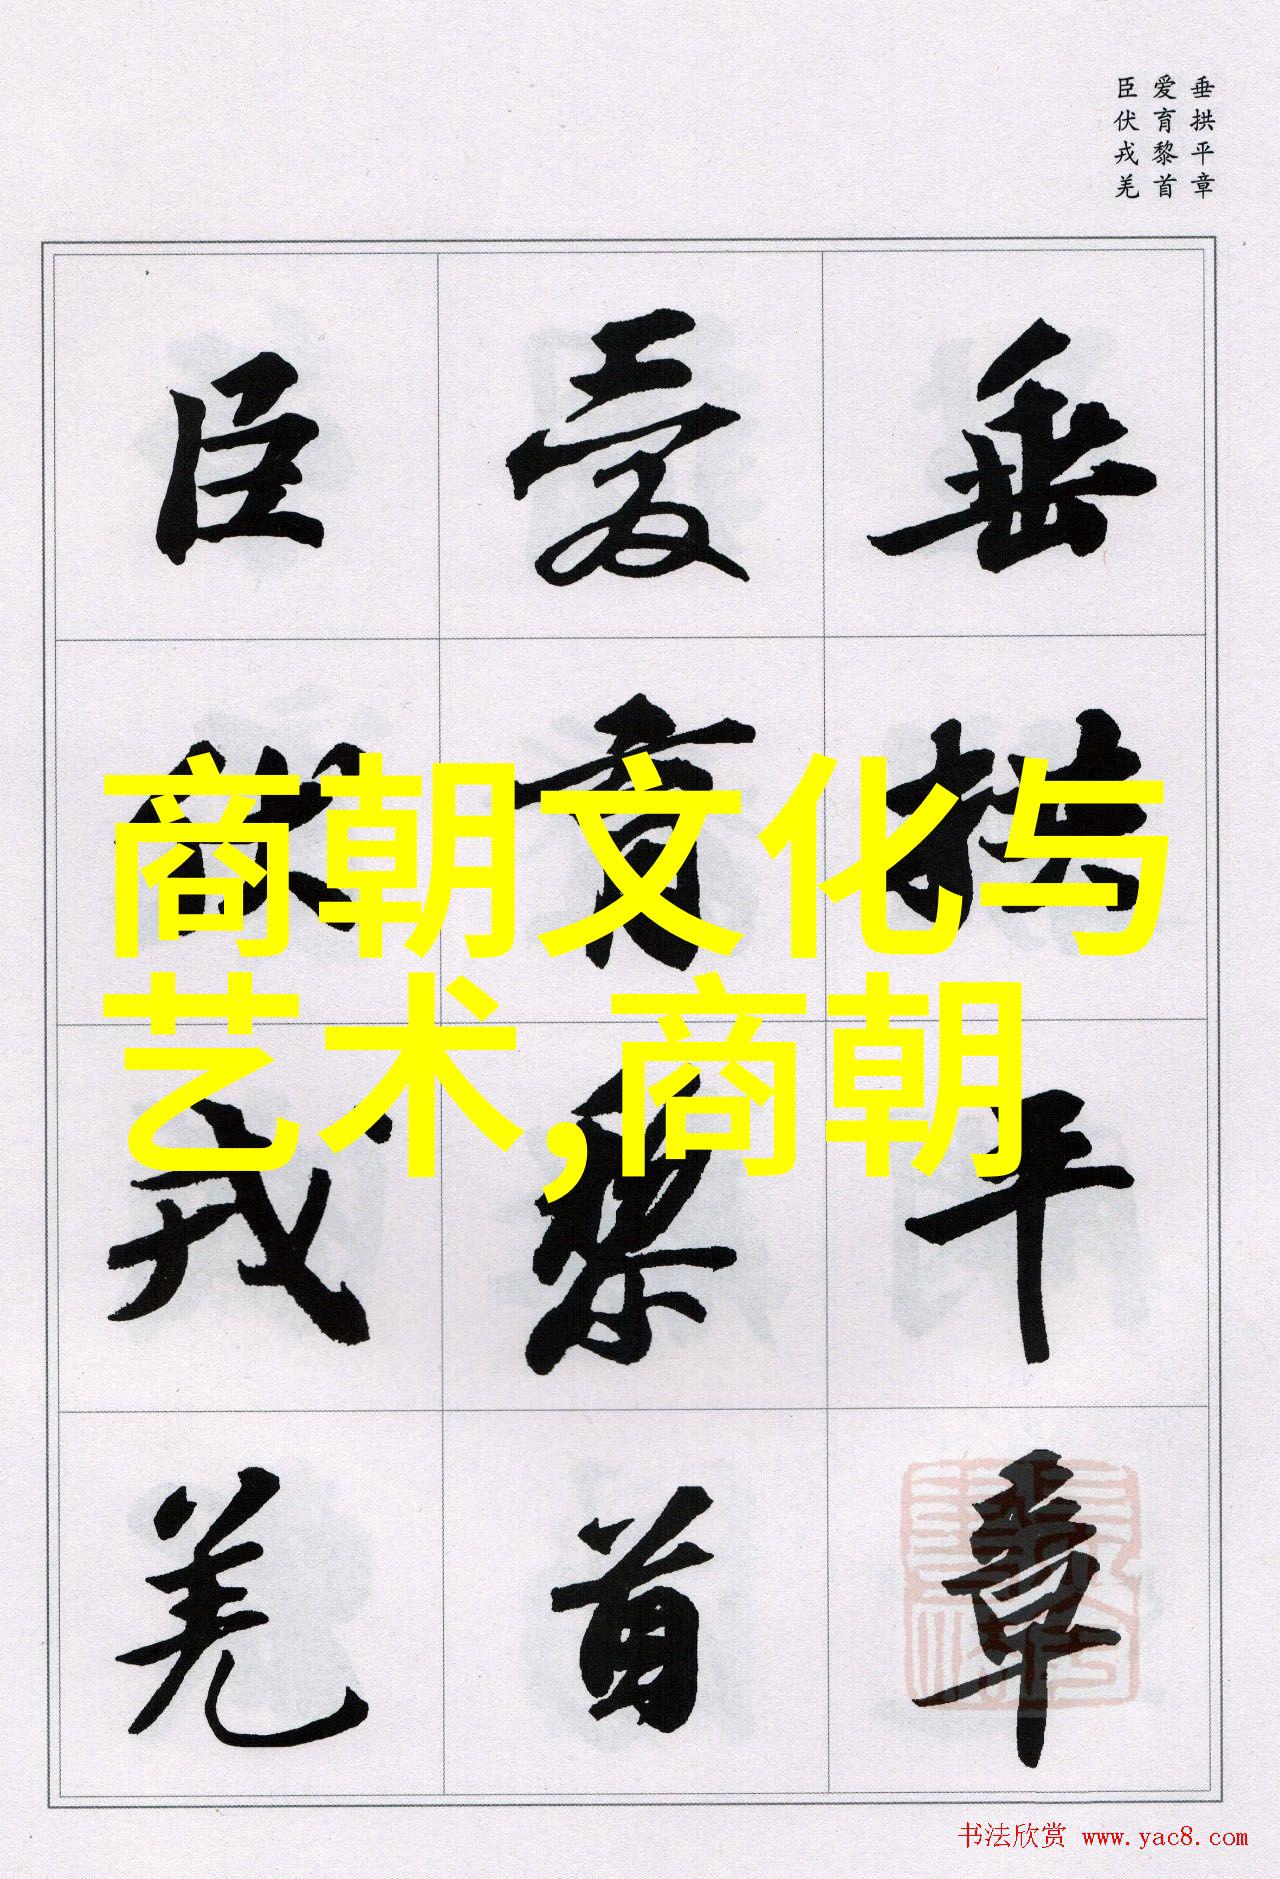 垂拱平章
爱育黎首
臣伏戎羌
垂拱平章
爱育黎首
臣伏戎羌
商朝文化与
艺术,商朝
书法欣赏 www.yac8.com